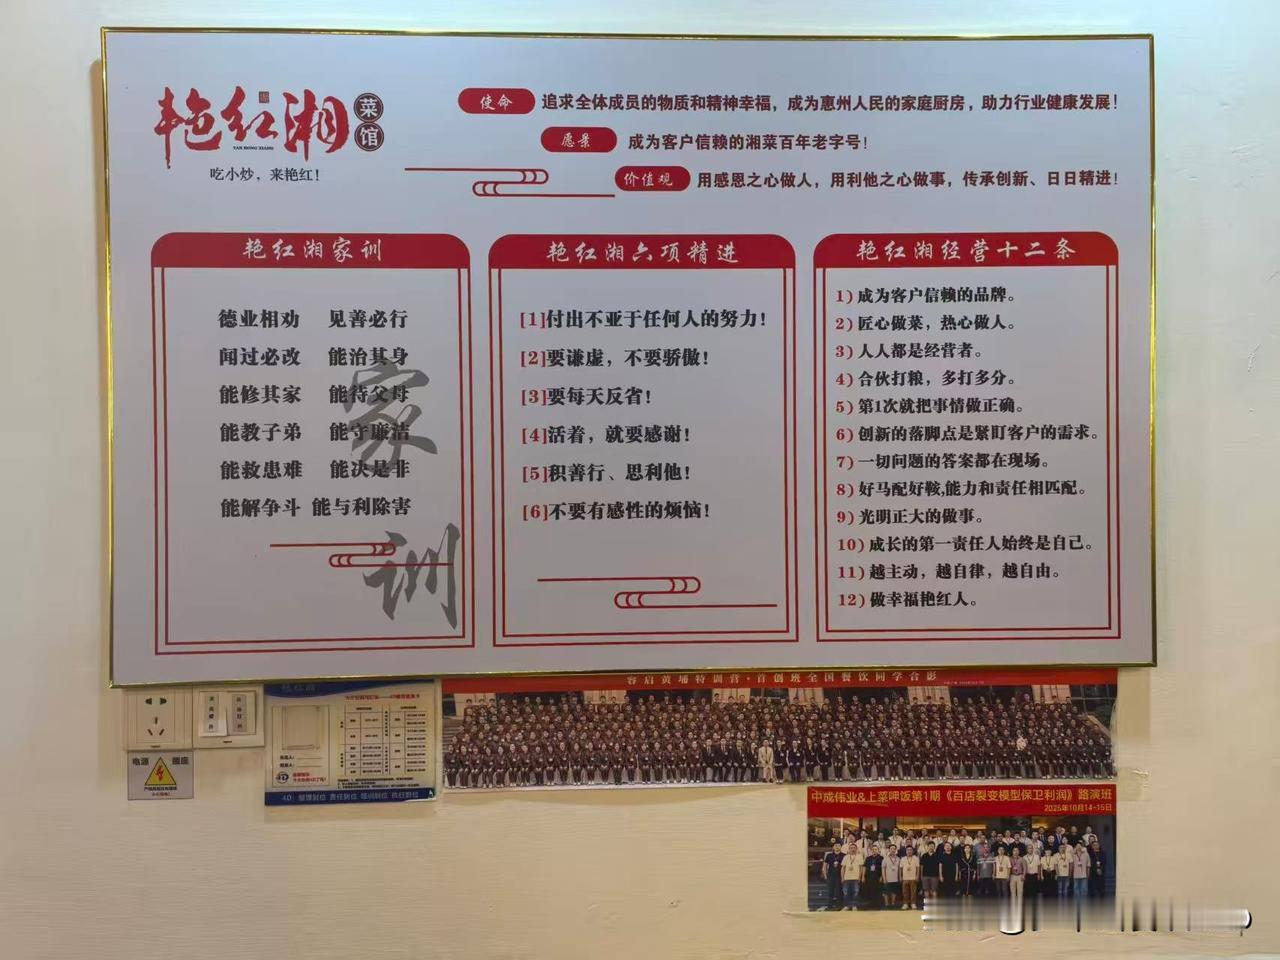 艳红湘
菜馆
YAN HONG XIANG
吃小炒，来艳红！
使命 追求全体成员的物质和精神幸福，成为惠州人民的家庭厨房，助力行业健康发展！
愿景 成为客户信赖的湘菜百年老字号！
价值观 用感恩之心做人，用利他之心做事，传承创新、日日精进！
艳红湘家训
德业相劝 见善必行
闻过必改 能治其身
能修其家 能待父母
能教子弟 能守廉洁
能救患难 能决是非
能解争斗 能与利除害
家训
艳红湘六项精进
[1]付出不亚于任何人的努力！
[2]要谦虚，不要骄傲！
[3]要每天反省！
[4]活着，就要感谢！
[5]积善行、思利他！
[6]不要有感性的烦恼！
艳红湘经营十二条
1）成为客户信赖的品牌。
2）匠心做菜，热心做人。
3）人人都是经营者。
4）合伙打粮，多打多分。
5）第1次就把事情做正确。
6）创新的落脚点是紧盯客户的需求。
7）一切问题的答案都在现场。
8）好马配好鞍,能力和责任相匹配。
9）光明正大的做事。
10）成长的第一责任人始终是自己。
11）越主动，越自律，越自由。
12）做幸福艳红人。
电源 插座
4D：整理到位 责任到位 培训到位 执行到位
容启黄埔特训营·首创班全国餐饮同学合影
中成伟业&上菜呷饭第1期《百店裂变模型保卫利润》路演班
2025年10月14-15日